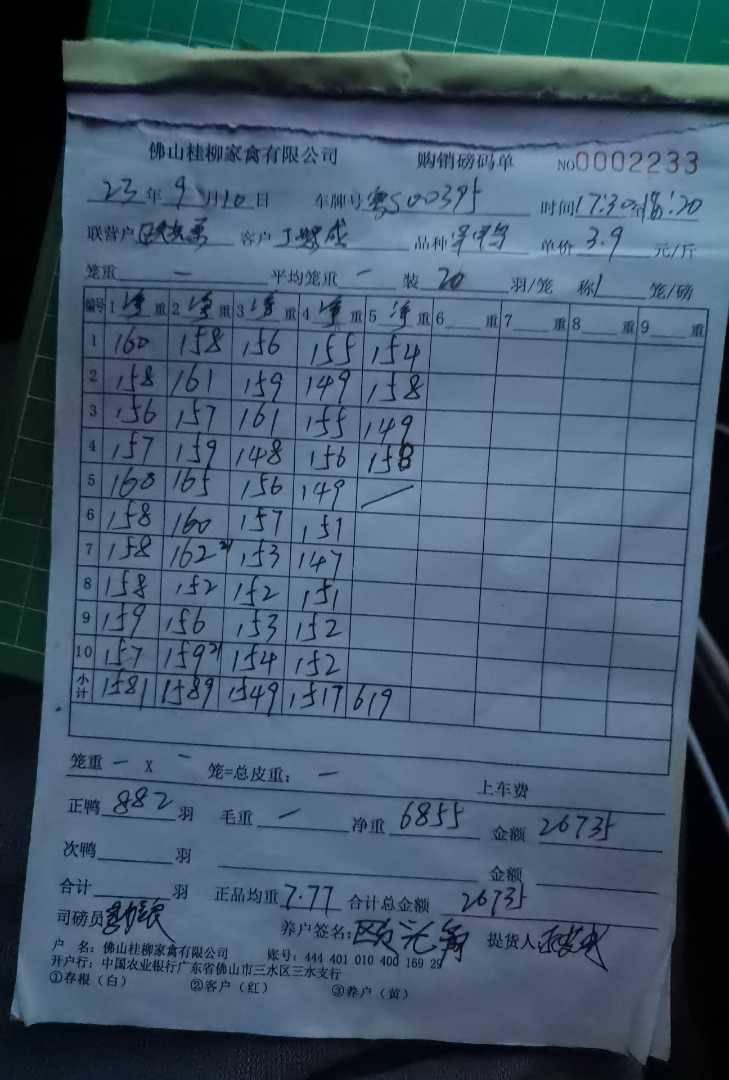 佛山桂柳家禽有限公司 购销磅码单 NO0002233
23年9月10日 车牌号粤S00395 时间17:30 18:20
联营户 客户 品种 单价3.9元/斤
笼重— 平均笼重— 装20羽/笼 称1笼/磅
编号 1净重 2净重 3净重 4净重 5净重 6重 7重 8重 9重
1 160 158 156 155 154
2 158 161 159 149 158
3 156 157 161 155 149
4 157 159 148 156 158
5 160 165 156 149 /
6 158 160 157 151
7 158 162 21 153 147
8 158 152 152 151
9 159 156 153 152
10 157 159 21 154 152
小计 1581 1589 1549 1517 619
笼重— X — 笼=总皮重:— 上车费
正鸭882羽 毛重— 净重6855 金额26735
次鸭 羽 金额
合计 羽 正品均重7.77 合计总金额26735
司磅员 养户签名: 提货人
户 名:佛山桂柳家禽有限公司 账号:444 401 010 400 169 29
开户行:中国农业银行广东省佛山市三水区三水支行
①存根(白) ②客户(红) ③养户(黄)